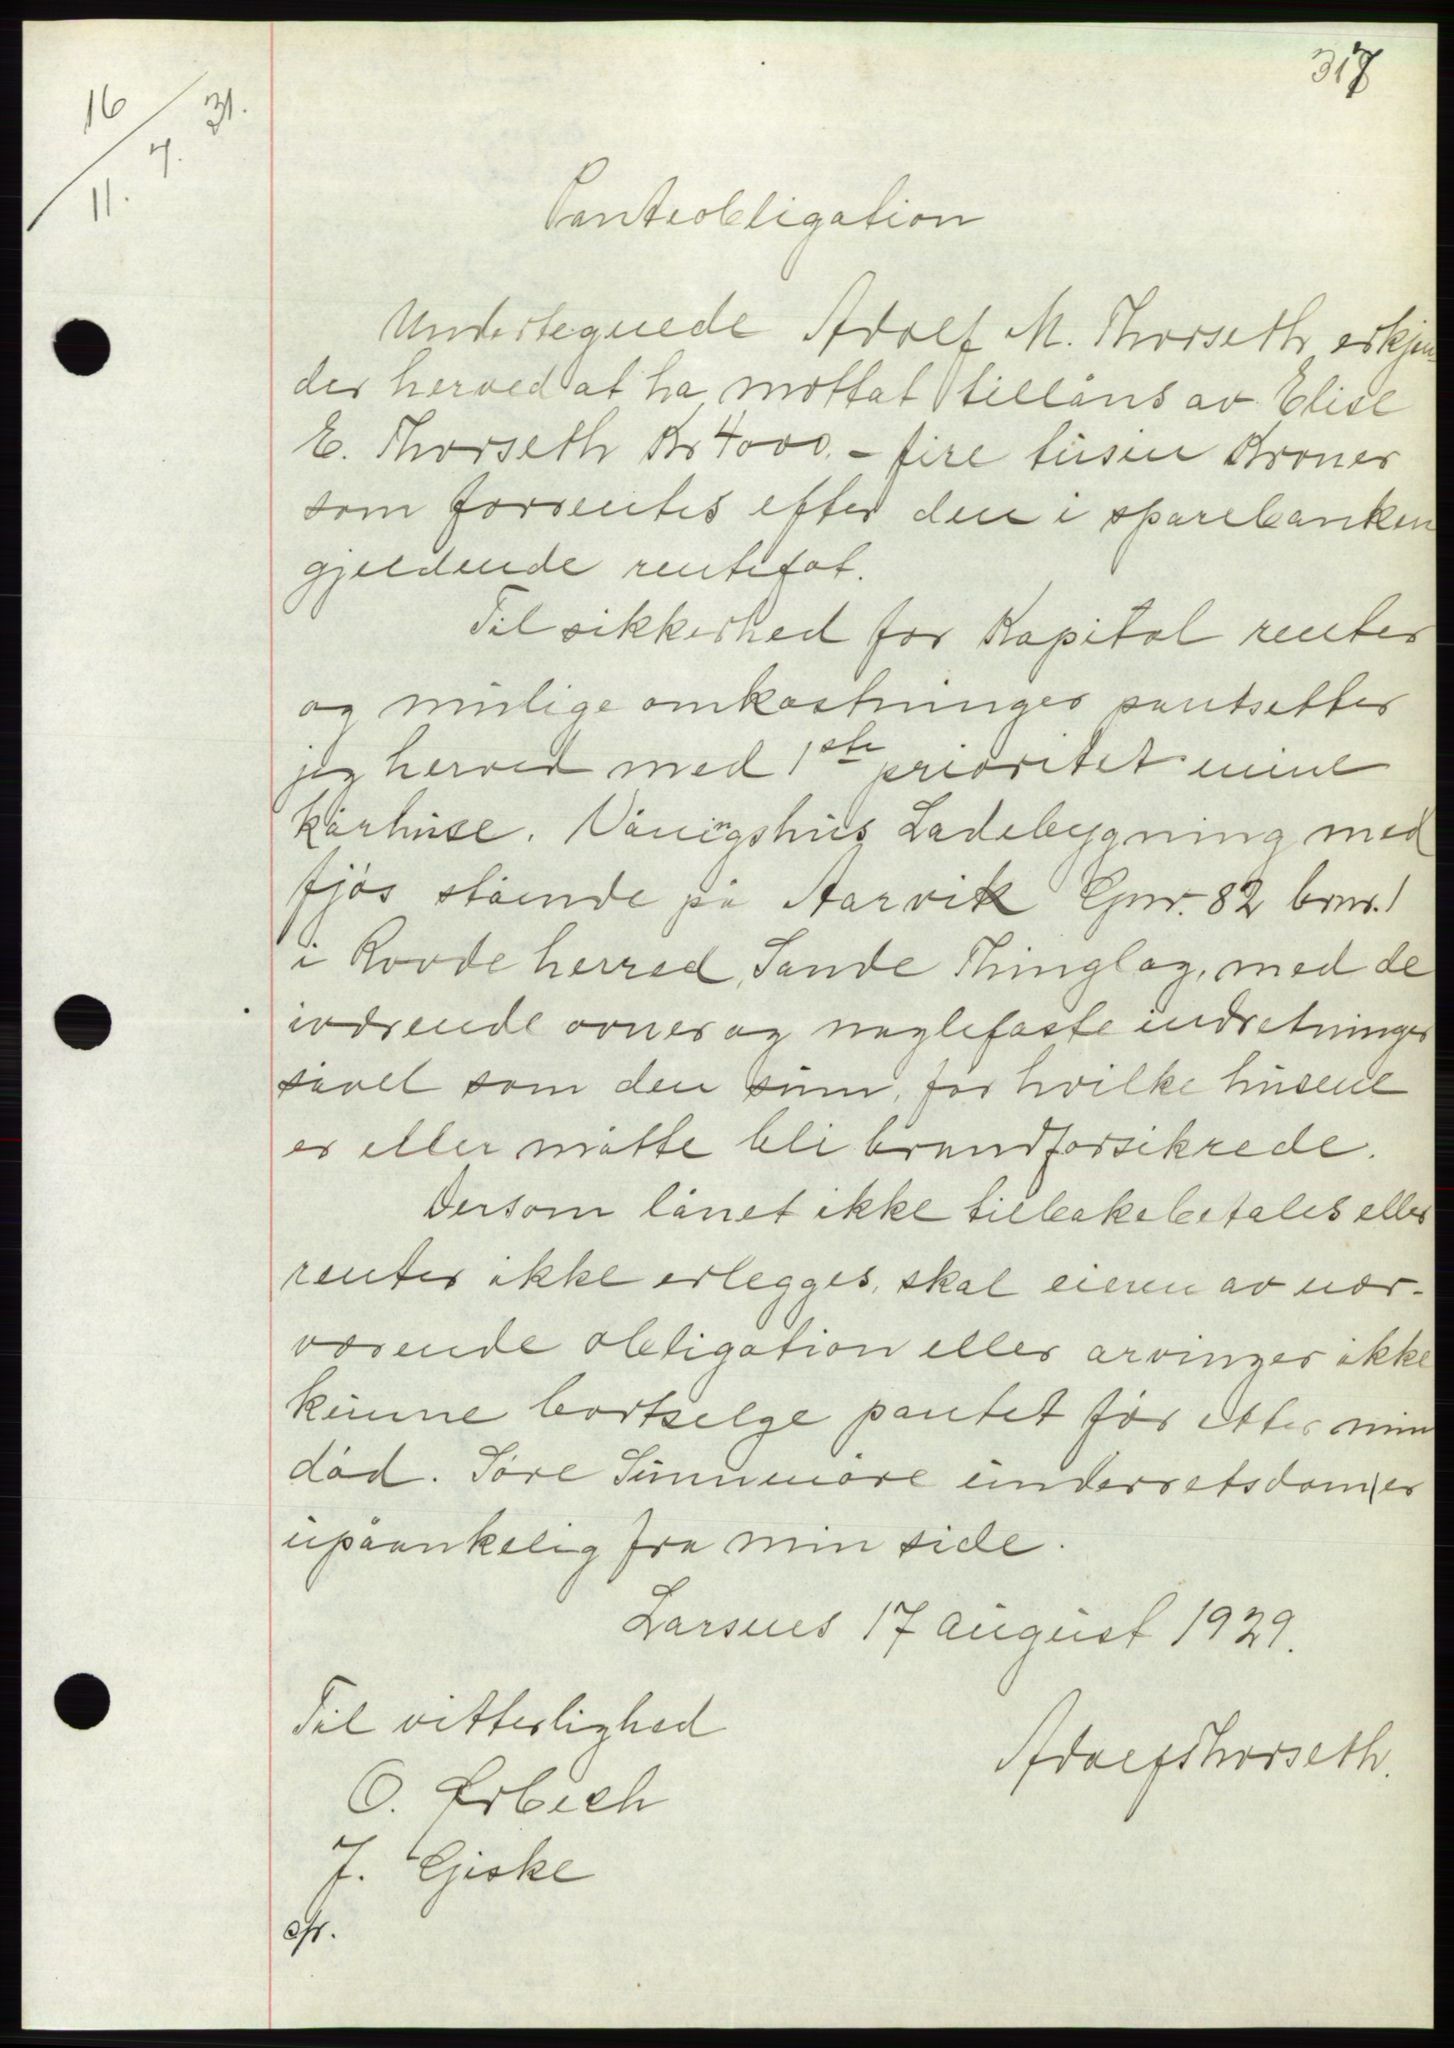 317
16
/ 7. 31.
11.
Panteobligation
Undertegnede Adolf M. Thorseth erkjen-
der herved at ha mottat tillåns av Elise
E. Thorseth Kr 4000.- fire tusen Kroner
som forrentes efter den i sparebanken
gjeldende rentefot.
Til sikkerhed for Kapital renter
og mulige omkostninger pantsetter
jeg herved med 1ste prioritet mine
kårhuse. Våningshus Ladebygning med
fjøs stående på Aarvik Gnr. 82 brnr. 1
i Rovde herred, Sande Thinglag, med de
iværende ovner og naglefaste indretninger
såvel som den sum, for hvilke husene
er eller måtte bli brandforsikrede.
Dersom lånet ikke tilbakebetales eller
renter ikke erlegges, skal eieren av nær-
værende obligation eller arvinger ikke
kunne bortselge pantet før etter min
død. Søre Sunnmøre underretsdom er
upåankelig fra min side.
Larsnes 17 august 1929.
Til vitterlighed
Adolf Thorseth.
O. Ørbech
J. Giske